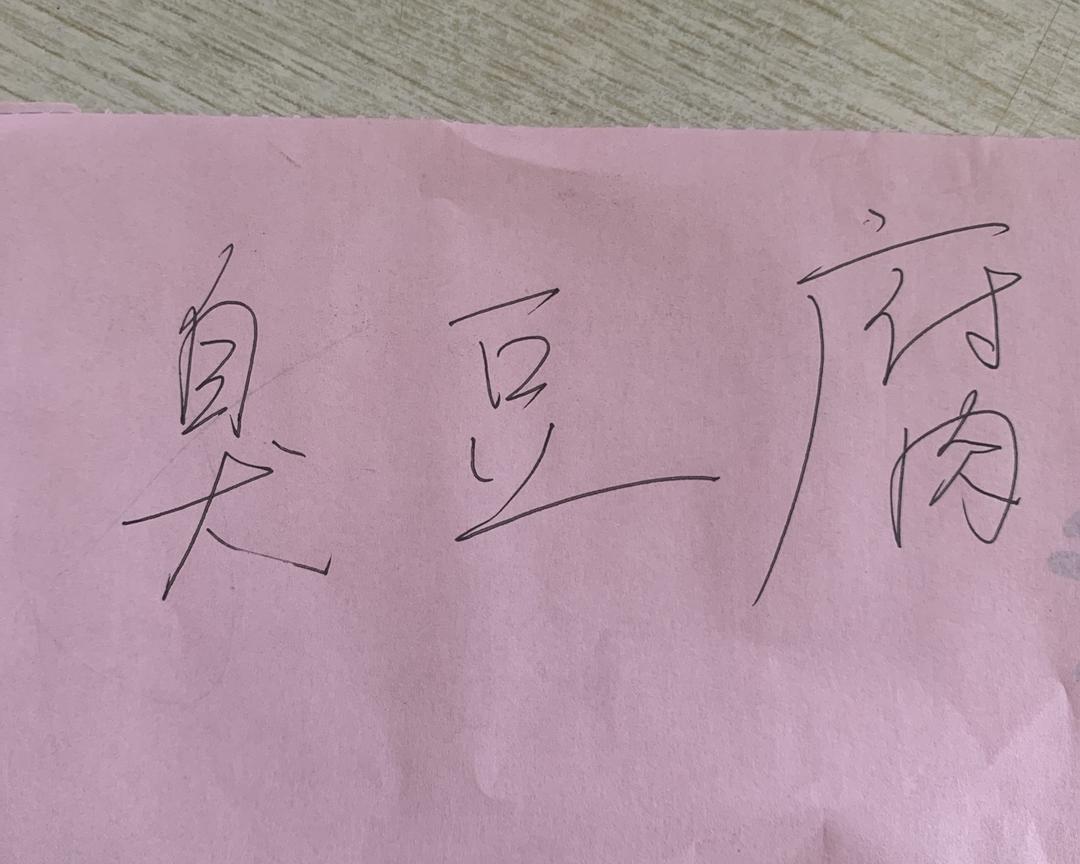 臭豆腐